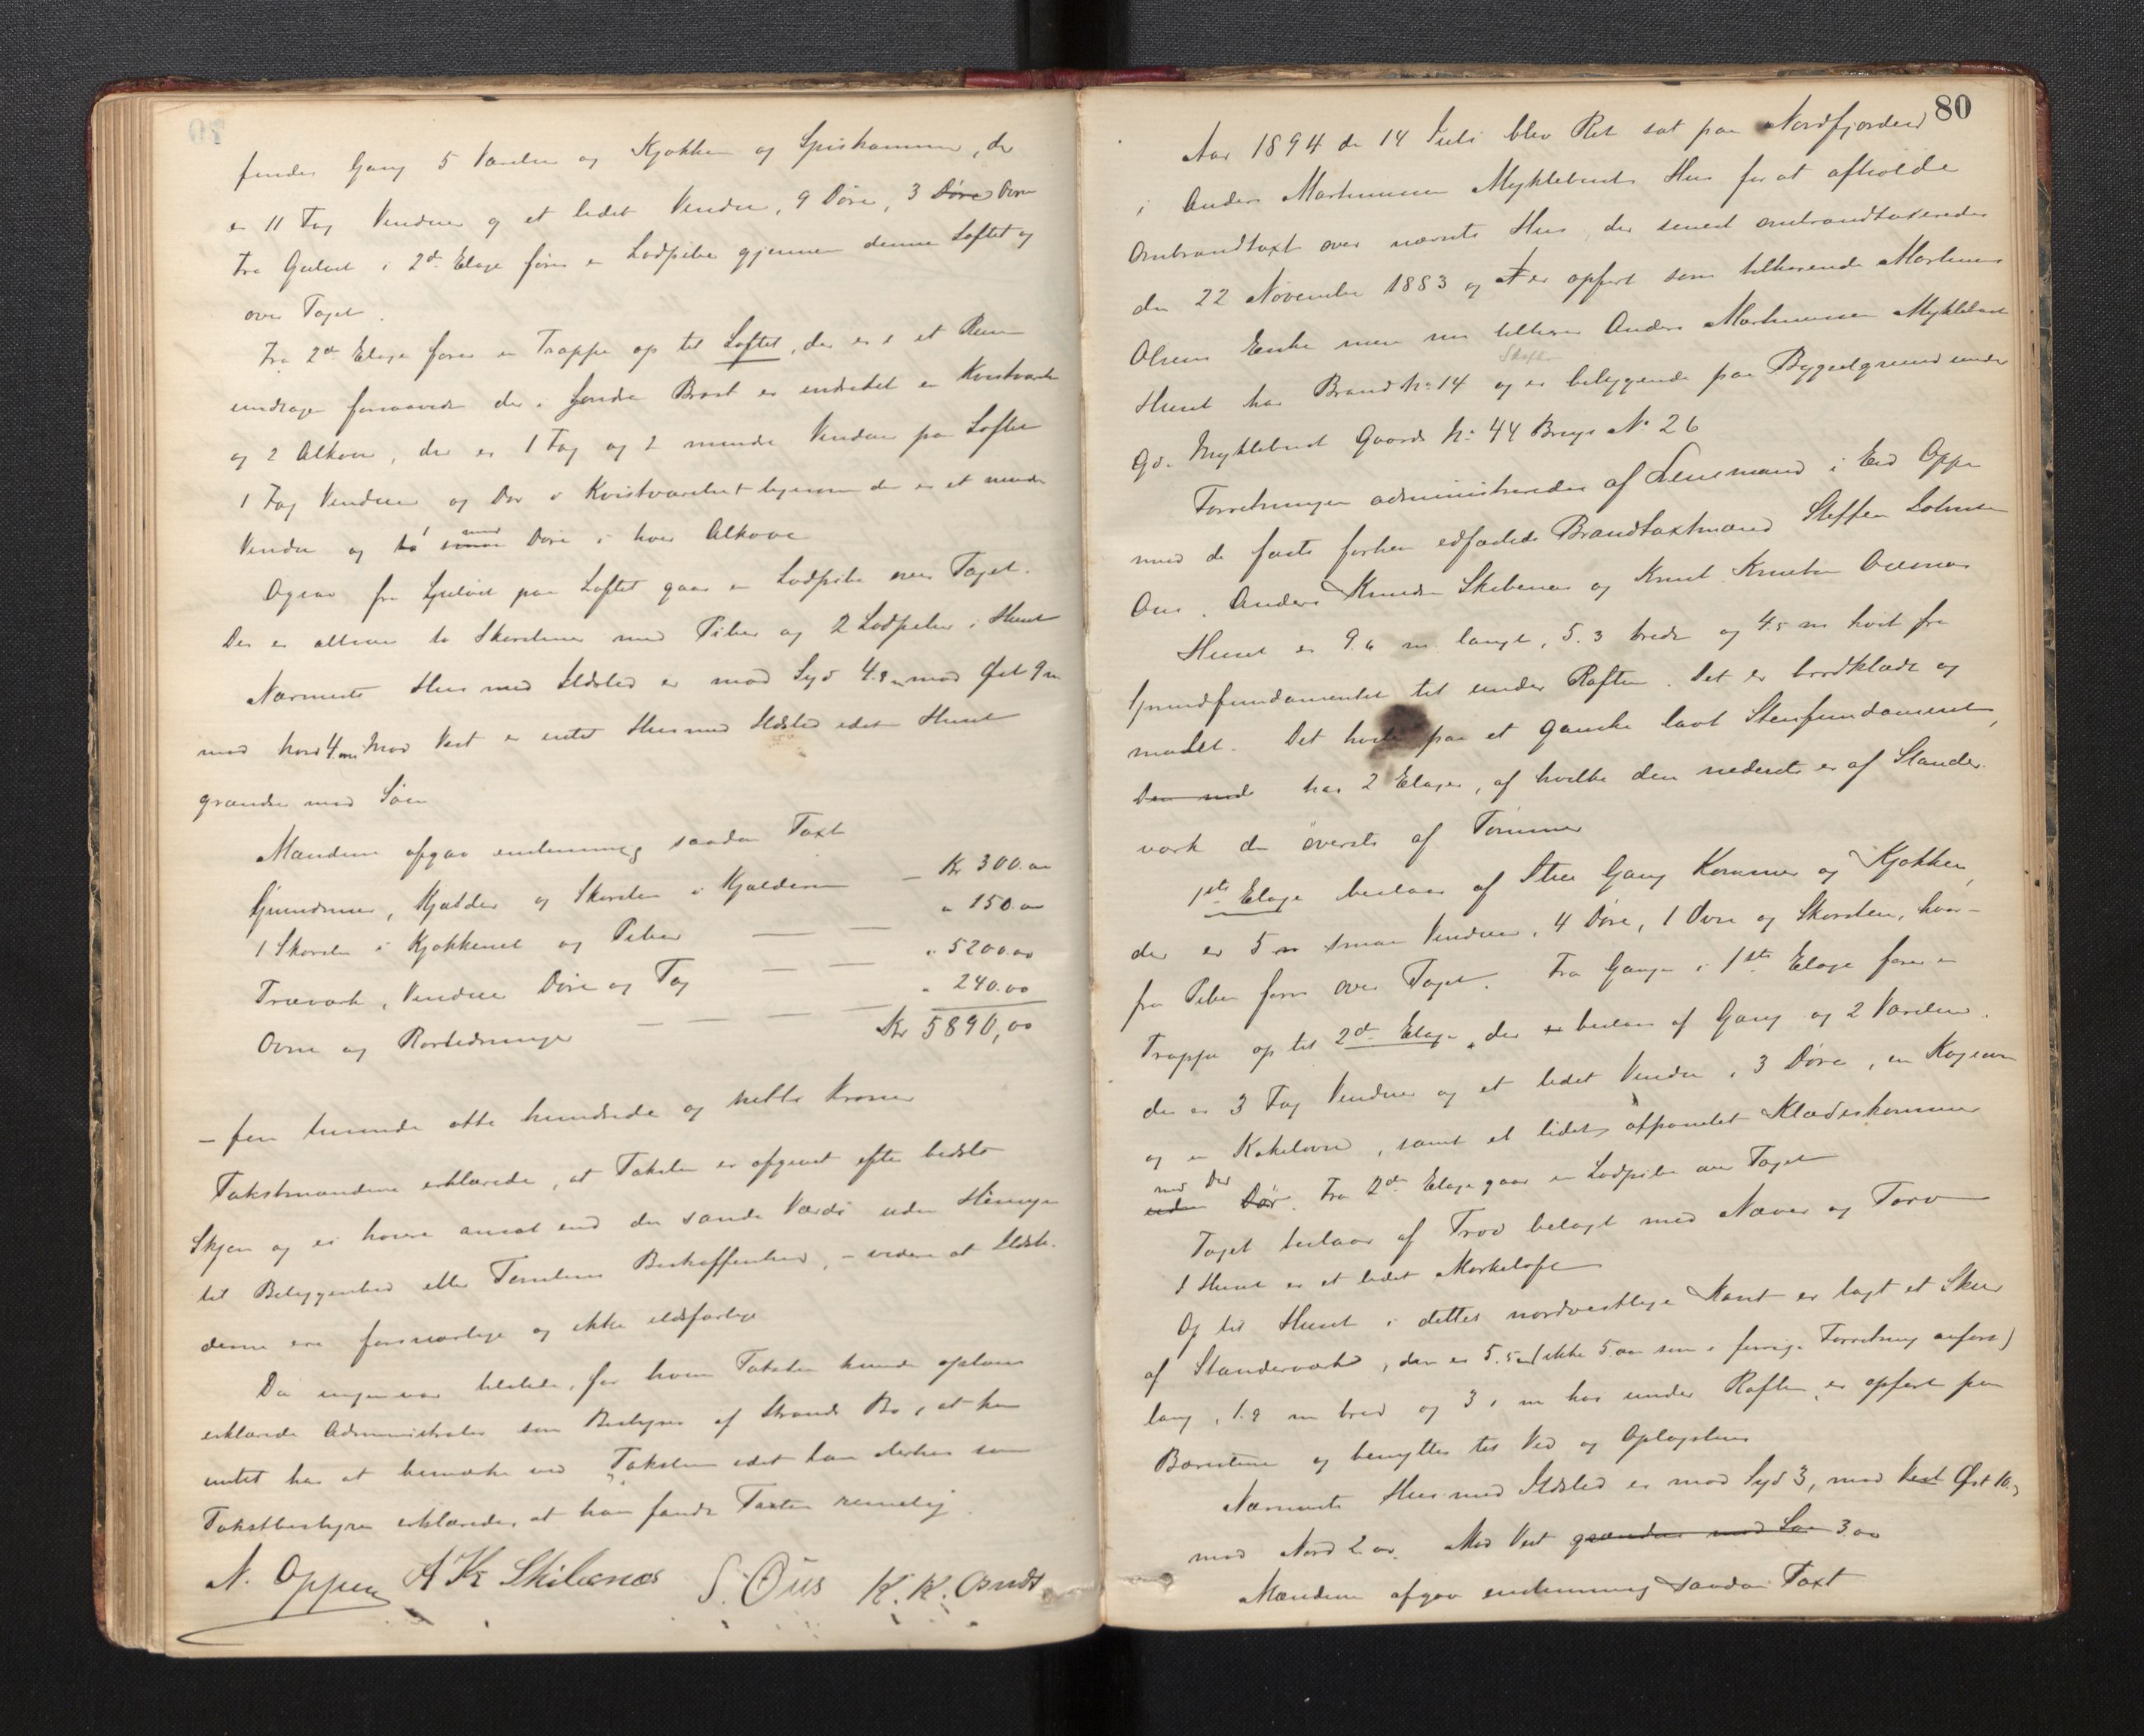 findes Gang 5 Værelser og Kjøkken og Spiskammer, der
er 11 Fag Vinduer og et lidet Vindue, 9 Døre, 3 Døre Ovne
Fra Gulvet i 2den Etage fører en Lodpibe gjennem denne Loftet og
over Taget.
Fra 2den Etage fører en Trappe op til Loftet, der er i et Rum
undtagen forsaavidt der i søndre Brøst er indrettet en Kvistværelse
og 2 Alkover, der er 1 Fag og 2 mindre Vinduer paa Loftet
1 Fag Vinduer og Dør i Kvistværelset ligesom der er et mindre
Vindue og to smaa med Døre i hver Alkove
Ogsaa fra Gulvet paa Loftet gaar en Lodpibe over Taget.
Der er altsaa to Skorstene med Piber og 2 Lodpiber i Huset
Nærmeste Hus med Ildsted er mod Syd 4.8 m mod Øst 9 m
mod Nord 4 m. Mod Vest er intet Hus med Ildsted idet Huset
grændser mod Søen
Mændene afgav enstemmig saadan Taxt
Grundmur, Kjælder og Skorsten i Kjælderen — Kr 300.00
1 Skorsten i Kjøkkenet og Piber — — " 150.00
Træværk, Vinduer Døre og Tag — — " 5200.00
Ovne og Rørledninger — — — — " 240.00
Kr 5890,00
— fem tusinde otte hundrede og nitti Kroner
Takstmændene erklærede, at Taksten er afgivet efter bedste
Skjøn og ei høiere ansat end den sande Værdi uden Hensyn
til Beliggenhed eller Tomtens Beskaffenhed, – videre at Ildste-
derne ere forsvarlige og ikke ildsfarlige
Da ingen var tilstede, for hvem Taksten kunde oplæses
erklærede Administrator som Bestyrer af Strands Bo, at han
intet har at bemærke ved Taksten idet han derhos som
Takstbestyrer erklærede, at han fandt Taxten rimelig.
N. Oppen A Kr Skibenæs S. Øus K. K. Osnæs
80
Aar 1894 den 14 Juli blev Ret sat paa Nordfjordeid
i Anders Martinussen Myklebusts Hus for at afholde
Ombrandtaxt over nævnte Hus, der senest ombrandtaxeredes
den 22 November 1883 og er opført som tilhørende Martinus
Olsens Enke men nu tilhører Anders Martinussen Myklebust
Huset har Brand No 14 og er beliggende paa Bygselgrund under
Gd. Myklebust Gaards No 44 Brugs No 26
Forretningen administreredes af Lensmand i Eid Oppen
med de faste forhen edfæstede Brandtaxtmænd Steffen
Øus, Anders Knudsen Skibenæs og Knut Knutsen Osnæs
Huset er 9.6 m langt, 5.3 bredt og 4.5 m høit fra
Grundfundamentet til under Raften. Det er bordklædt og
malet. Det hviler paa et ganske lavt Stenfundament,
Den ned har 2 Etager, af hvilke den nederste er af Stander-
værk den øverste af Tømmer
1ste Etage bestaar af Stue Gang Kammer og Kjøkken,
der er 5 m smaa Vinduer, 4 Døre, 1 Ovn og Skorsten, hvor-
fra Piben fører over Taget. Fra Gangen i 1ste Etage fører en
Trappe op til 2den Etage, der er bestaar af Gang og 2 Værelser.
der er 3 Fag Vinduer og et lidet Vindue, 3 Døre, en Kogeovn
og en Kakelovn, samt et lidet afpanelet Klædeskammer
med Dør
uden Dør. Fra 2den Etage gaar en Lodpibe over Taget
Taget bestaar af Trod belagt med Næver og Torv
I Huset er et lidet Mørkeloft
Op til Huset i dettes nordvestlige Kant er lagt et Skur
af Standerværk, der er 5.5 m (ikke 5.00 som i forrige Forretning anført)
lang, 1.9 m bred og 3.1 m høi under Raften, er opført paa
Barstene og benyttes til Ved og Oplagshus
Nærmeste Hus med Ildsted er mod Syd 3, mod Vest Øst 10.,
mod Nord 2.00. Mod Vest grændser mod Søen 3.00
Mændene afgav enstemmig saadan Taxt